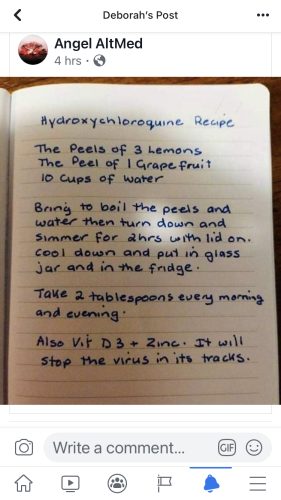 Deborah's Post
Angel AltMed
4 hrs ·
Hydroxychloroquine Recipe
The Peels of 3 Lemons
The Peel of 1 Grapefruit
10 cups of water
Bring to boil the peels and
water then turn down and
simmer for 2hrs with lid on.
cool down and put in glass
jar and in the fridge.
Take 2 tablespoons every morning
and evening.
Also Vit D3 + Zinc. It will
stop the virus in its tracks.
Write a comment...
GIF